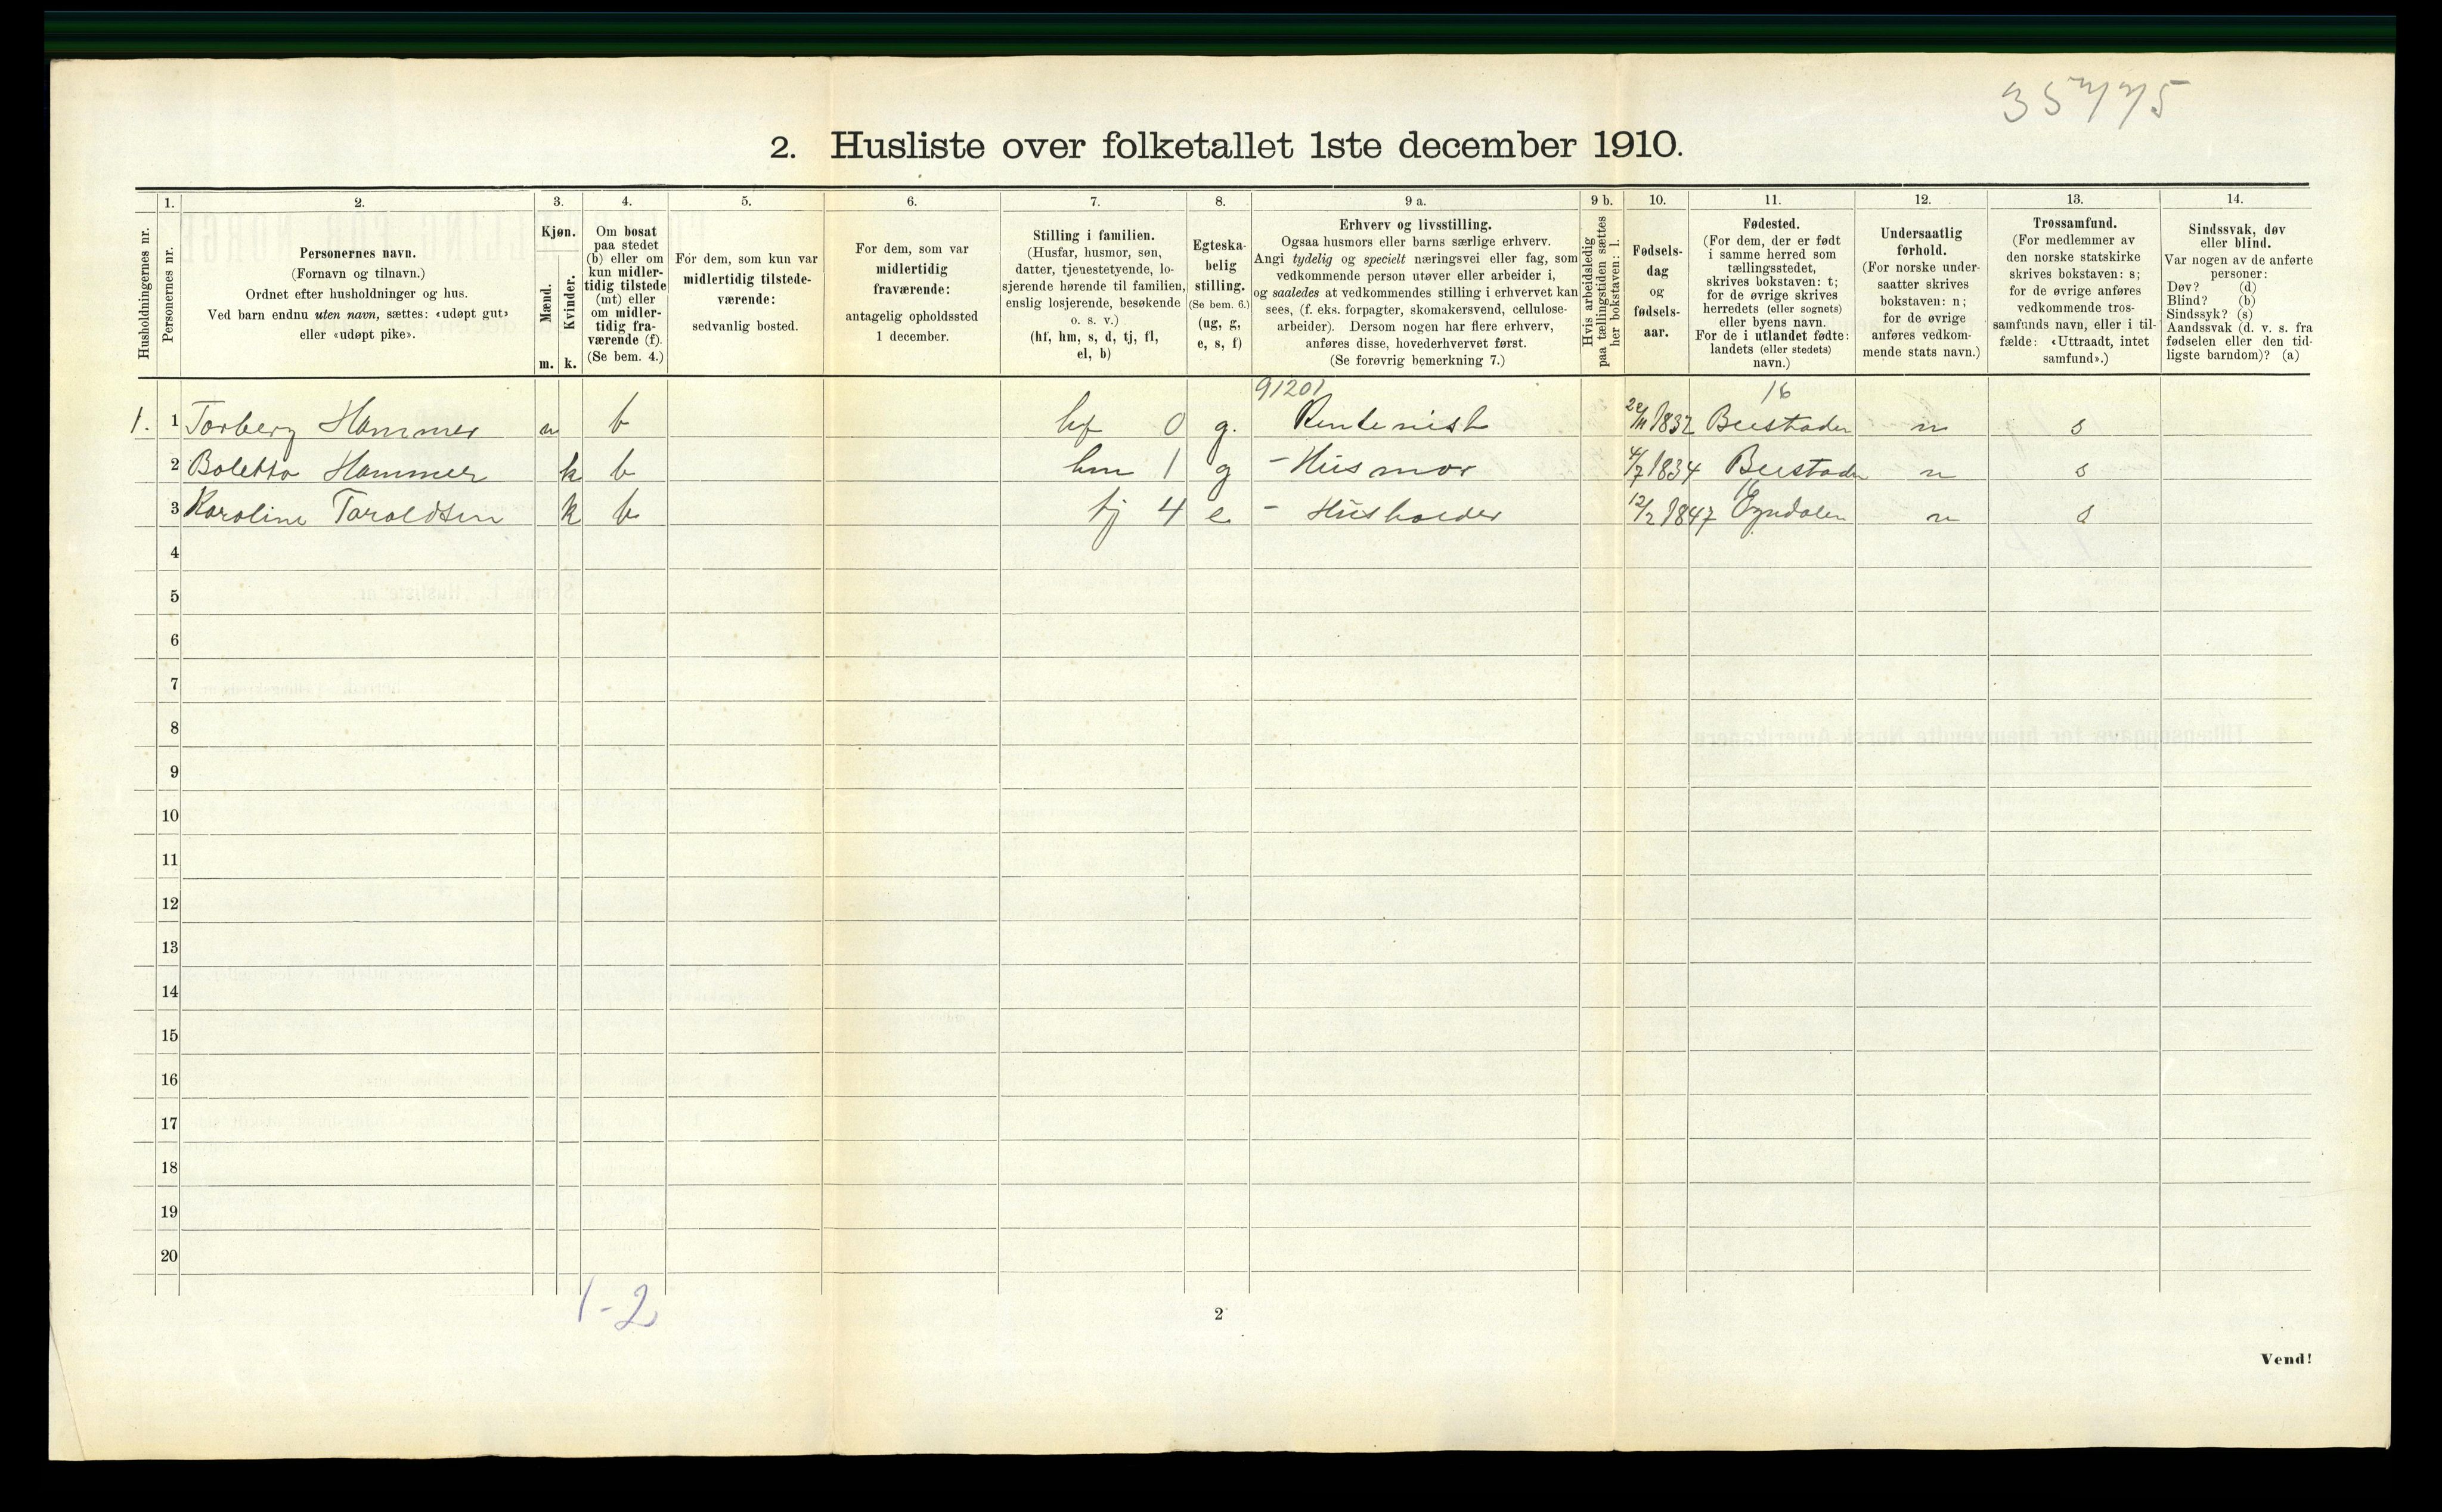 35775
2. Husliste over folketallet 1ste december 1910.
Husholdningernes nr.
1.
Personernes nr.
2.
Personernes navn.
(Fornavn og tilnavn.)
Ordnet efter husholdninger og hus.
Ved barn endnu uten navn, sættes: «udøpt gut»
eller «udøpt pike».
3.
Kjøn.
Mænd.
Kvinder.
m. k.
4.
Om bosat
paa stedet
(b) eller om
kun midler-
tidig tilstede
(mt) eller
om midler-
tidig fra-
værende (f).
(Se bem. 4.)
5.
For dem, som kun var
midlertidig tilstede-
værende:
sedvanlig bosted.
6.
For dem, som var
midlertidig
fraværende:
antagelig opholdssted
1 december.
7.
Stilling i familien.
(Husfar, husmor, søn,
datter, tjenestetyende, lo-
sjerende hørende til familien,
enslig losjerende, besøkende
o. s. v.)
(hf, hm, s, d, tj, fl,
el, b)
8.
Egteska-
belig
stilling.
(Se bem. 6.)
(ug, g,
e, s, f)
9 a.
Erhverv og livsstilling.
Ogsaa husmors eller barns særlige erhverv.
Angi tydelig og specielt næringsvei eller fag, som
vedkommende person utøver eller arbeider i,
og saaledes at vedkommendes stilling i erhvervet kan
sees, (f. eks. forpagter, skomakersvend, cellulose-
arbeider). Dersom nogen har flere erhverv,
anføres disse, hovederhvervet først.
(Se forøvrig bemerkning 7.)
9 b.
Hvis arbeidsledig
paa tællingstiden sættes
her bokstaven: l.
10.
Fødsels-
dag
og
fødsels-
aar.
11.
Fødested.
(For dem, der er født
i samme herred som
tællingsstedet,
skrives bokstaven: t;
for de øvrige skrives
herredets (eller sognets)
eller byens navn.
For de i utlandet fødte:
landets (eller stedets)
navn.)
12.
Undersaatlig
forhold.
(For norske under-
saatter skrives
bokstaven: n;
for de øvrige
anføres vedkom-
mende stats navn.)
13.
Trossamfund.
(For medlemmer av
den norske statskirke
skrives bokstaven: s;
for de øvrige anføres
vedkommende tros-
samfunds navn, eller i til-
fælde: «Uttraadt, intet
samfund».)
14.
Sindssvak, døv
eller blind.
Var nogen av de anførte
personer:
Døv? (d)
Blind? (b)
Sindssyk? (s)
Aandssvak (d. v. s. fra
fødselen eller den tid-
ligste barndom)? (a)
91201 16
1. 1 Torberg Hammer m b hf 0 g. Rentenist 1832 Beistaden n s
2 Boletta Hammer k b hm 1 g - Husmor 4/7 1834 Beistaden n s
16
3 Karoline Taraldsen k b tj 4 e - Husholder 12/2 1847 n s
4
5
6
7
8
9
10
11
12
13
14
15
16
17
18
19
20
1-2
2
Vend!